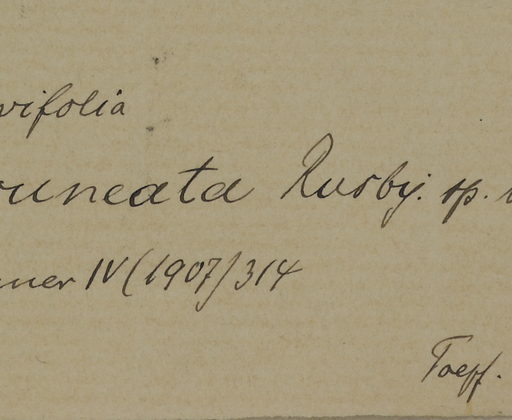 vifolia
uneata Rusby. sp.
ner IV (1907) 314
Toepf.